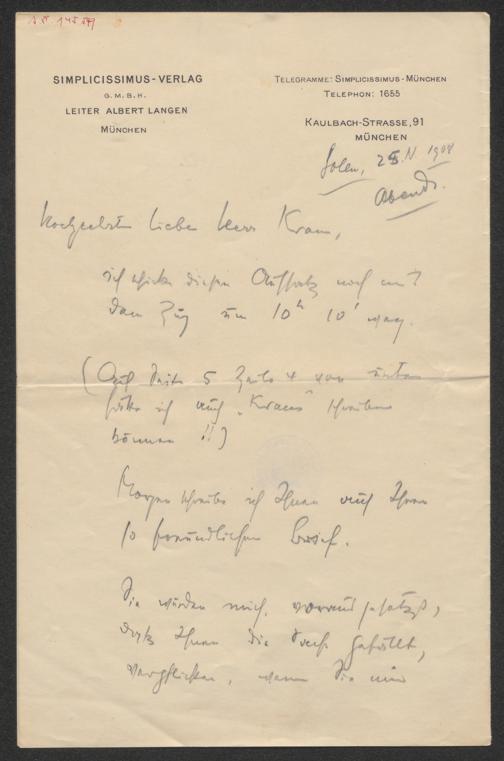 I.N. 145.579
SIMPLICISSIMUS-VERLAG
G. M. B. H.
LEITER ALBERT LANGEN
MÜNCHEN
TELEGRAMME: SIMPLICISSIMUS-MÜNCHEN
TELEPHON: 1655
KAULBACH-STRASSE, 91
MÜNCHEN
25. 1908
Abends.
lieber Herr Kraus,
ich schicke diesen Aufsatz noch mit
dem Zug um 10h 10' weg.
(Auf Seite 5 Zeile 4 von unten
hätte ich auch „Kraus“ schreiben
können !!)
Morgen schreibe ich Ihnen auf Ihren
so freundlichen Brief.
Sie würden mich, vorausgesetzt,
daß Ihnen die Sache gefällt,
verpflichten, wenn Sie mir